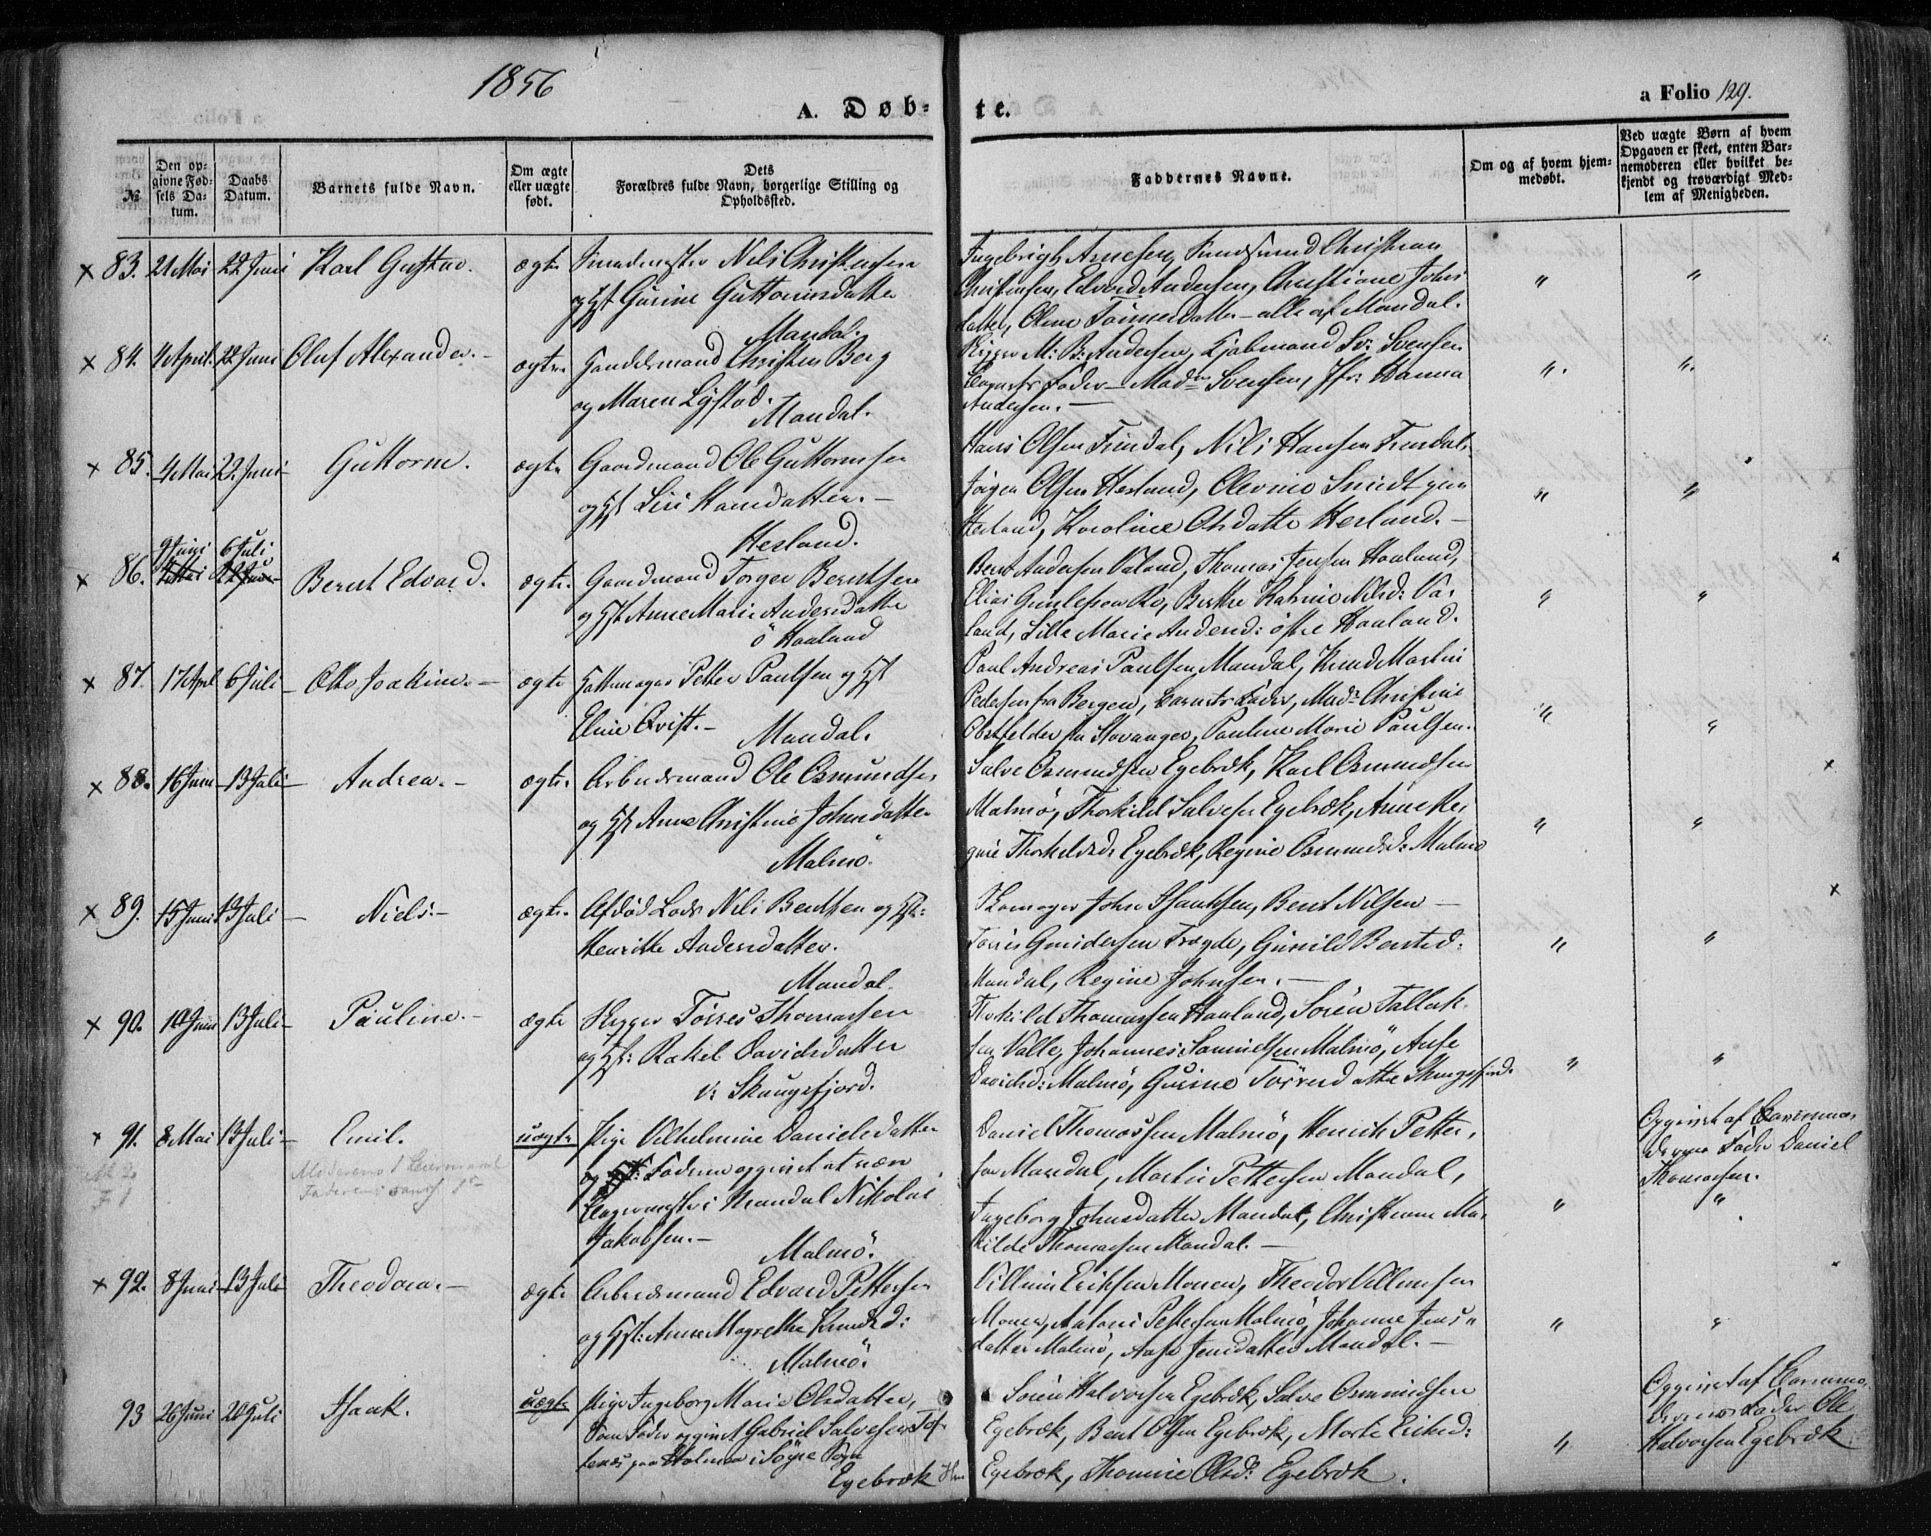 1856
A. Døb-
te.
a Folio 129.
№
Den op-
givne Fød-
sels Da-
tum.
Daabs
Datum.
Barnets fulde Navn.
Om ægte
eller uægte
født.
Dets
Forældres fulde Navn, borgerlige Stilling og
Opholdssted.
Faddernes Navne.
Om og af hvem hjem-
medøbt.
Ved uægte Børn af hvem
Opgaven er skeet, enten Bar-
nemoderen eller hvilket be-
kjendt og troværdigt Med-
lem af Menigheden.
× 83. 21 Mai 22 Juni Karl Gustav. ægte Nils Christensen
og Hst Gurine Guttormsdatter
Mandal.
Ingebrigh Arnesen, Christian
Christensen, Edvard Andersen, Christiane Johns
datter, Oline Tonnesdatter - alle af Mandal.
× 84. 4 April. 22 Juni Oluf Alexander. - ægte. Handelsmand Christen Berg
og Maren Lystad.
Mandal.
M: B: Andersen, Kjøbmand Sv: Svensen
Barnets Fader - Madm Svensen, Jfr: Hanna
Andersen. -
× 85. 4 Mai 22 Juni Guttorm. ægte Gaardmand Ole Guttormsen
og Hst Lisi Hansdatter. -
Hesland.
Hans Olsen Frendal, Nils Hansen Frendal,
Jørgen Olsen Hesland, Olevine Smidt
Hesland, Karoline Olsdatter Hesland. -
× 86. 9 Juni 6 Juli
4 Mai 22 Juni
Bernt Edvard. ægte. Gaardmand Torger Berntsen
og Hst Anne Marie Andersdatter
ø Haaland
Bent Andersen Valand, Thomas Jensen Haaland,
Elias Gunlefsen Ro, Berthe Katrine Nilsd: Va-
land, Lille Marie Andersd: østre Haaland.
× 87. 17 April 6 Juli - Otto Joakim. - ægte Hattemager Petter Paulsen og Hst
Eline Qvist. - Mandal.
Paul Andreas Paulsen Mandal, Knud Martin
Pedersen fra Bergen, Barnets Fader, Mad: Christine
Obstfelder fra Stavanger, Pauline Marie Paulsen.
× 88. 16 Juni - 13 Juli - Andrea. - ægte. Arbeidsmand Ole Osmundsen
og Hst Anne Christine Johnsdatter
Malmø.
Salve Osmundsen Egebæk, Karl Osmundsen
Malmø, Thorkild Salvesen Egebæk, Anne Re-
gine Thorkildsd: Egebæk, Regine Osmundsd: Malmø
× 89. 15 Juni 13 Juli - Niels. - ægte. Afdød Lods Nils Bentsen og Hst:
Henrikke Andersdatter.
Mandal.
Skomager John Isaaksen, Bent Nilsen -
Gunild Berntsd:
Mandal, Regine Johnsen. -
× 90. 10 Juni 13 Juli - Pauline. - ægte Torres Thomassen
og Hst: Rakel Davidsdatter
v: Skougsfjord.
Thorkild Thomassen Haaland, Søren Tallak-
sen Valle, Johannes Samuelsen Malmø, Anse
Davidsd: Malmø, Gurine Torresdatter Skougsfjord.
× 91. 8 Mai 13 Juli - Emil. uægte Pige Vilhelmine Danielsdatter
og Hst: Faderen opgivet at være
i Mandal Nikolai
Jakobsen. -
Malmø.
M 2
F 1
Moderens 1 Leiermaal
Faderens 1
Daniel Thomassen Malmø, Henrik Petter-
sen Mandal, Martin Pettersen Mandal,
Ingeborg Johnsdatter Mandal, Christiane Ma-
tilde Thomassen Mandal. -
Opgivet af Barnemo-
derens Fader Daniel
Thomassen.
× 92. 8 Juni 13 Juli Theodora. - ægte Arbeidsmand Edvard Pettersen
og Hst: Anne Magrethe Knudsd:
Malmø.
Villum Eriksen Monen, Theodor Villumsen
Monen, Antoni Pettersen Malmø, Johanne Jens-
datter Malmø, Aase Jensdatter Mandal. -
93 26 Juni 20 Juli Isaak. uægte Pige Ingeborg Marie Olsdatter,
Som Fader opgivet Gabriel Salvesen
paa Holmen i Søgne Sogn
Egebæk
Søren Halvorsen Egebæk, Salve Osmundsen
Egebæk, Bent Olsen Egebæk, Marte Eriksd:
Egebæk, Thomine Olsd: Egebæk.
Opgivet af Barnemo-
derens Fader Ole
Halvorsen Egebæk